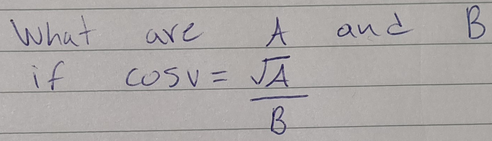 What are A and B
if cosv = √A
B